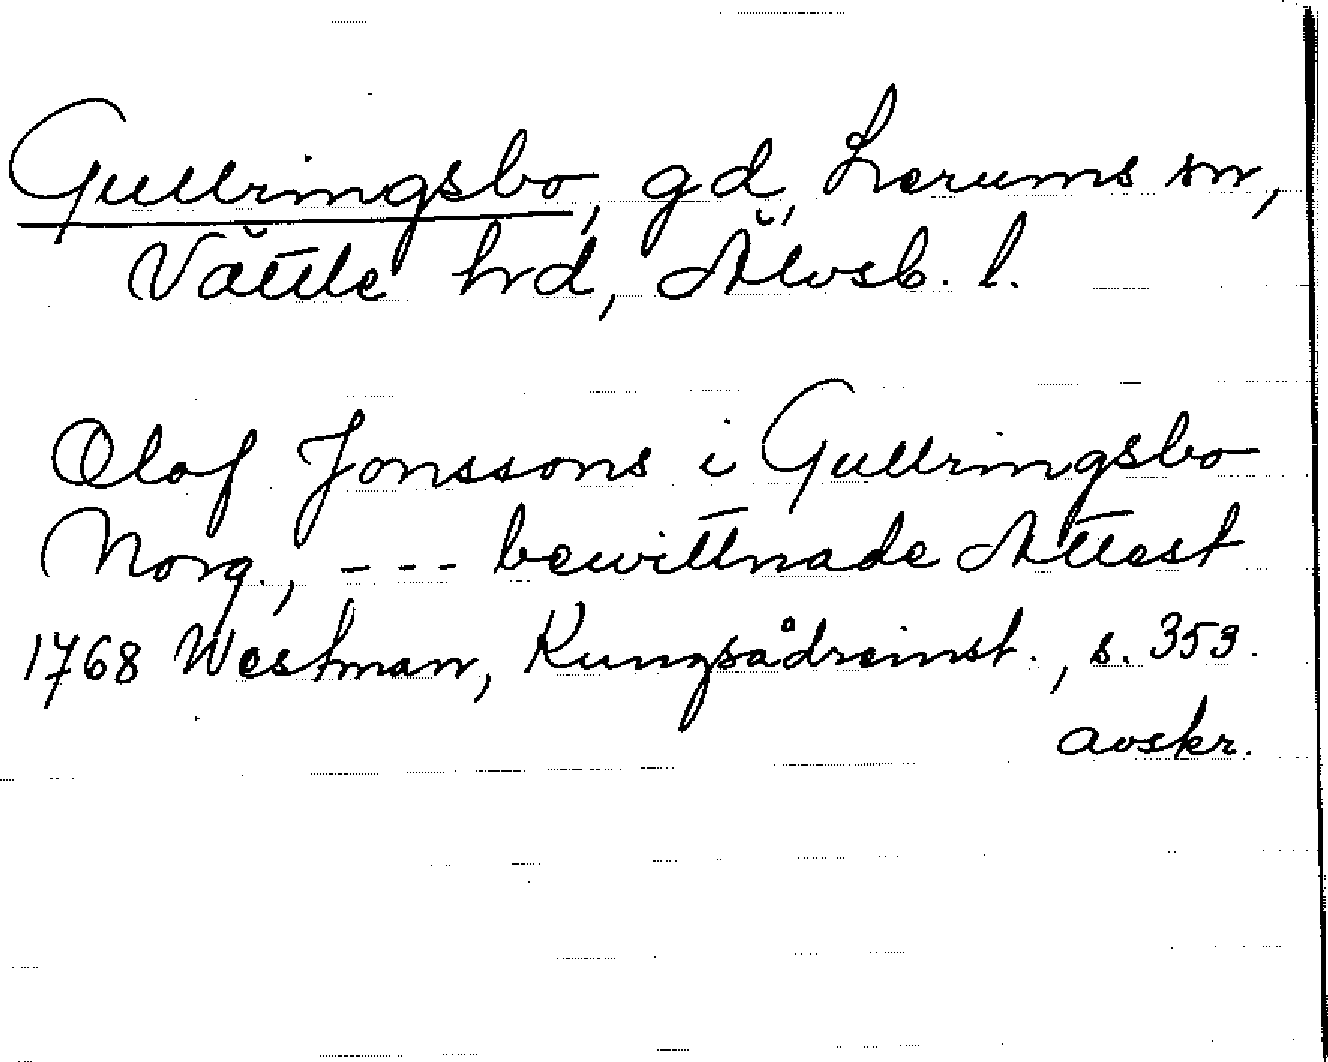 Gullringsbo, gd, Lerums sn,
Vättle hd, Älvsb. l.
Olof Jonssons i Gullringsbo
Norg., --- bewittnade Attest
1768 Westman, Kungsådreinst., s. 353.
avskr.